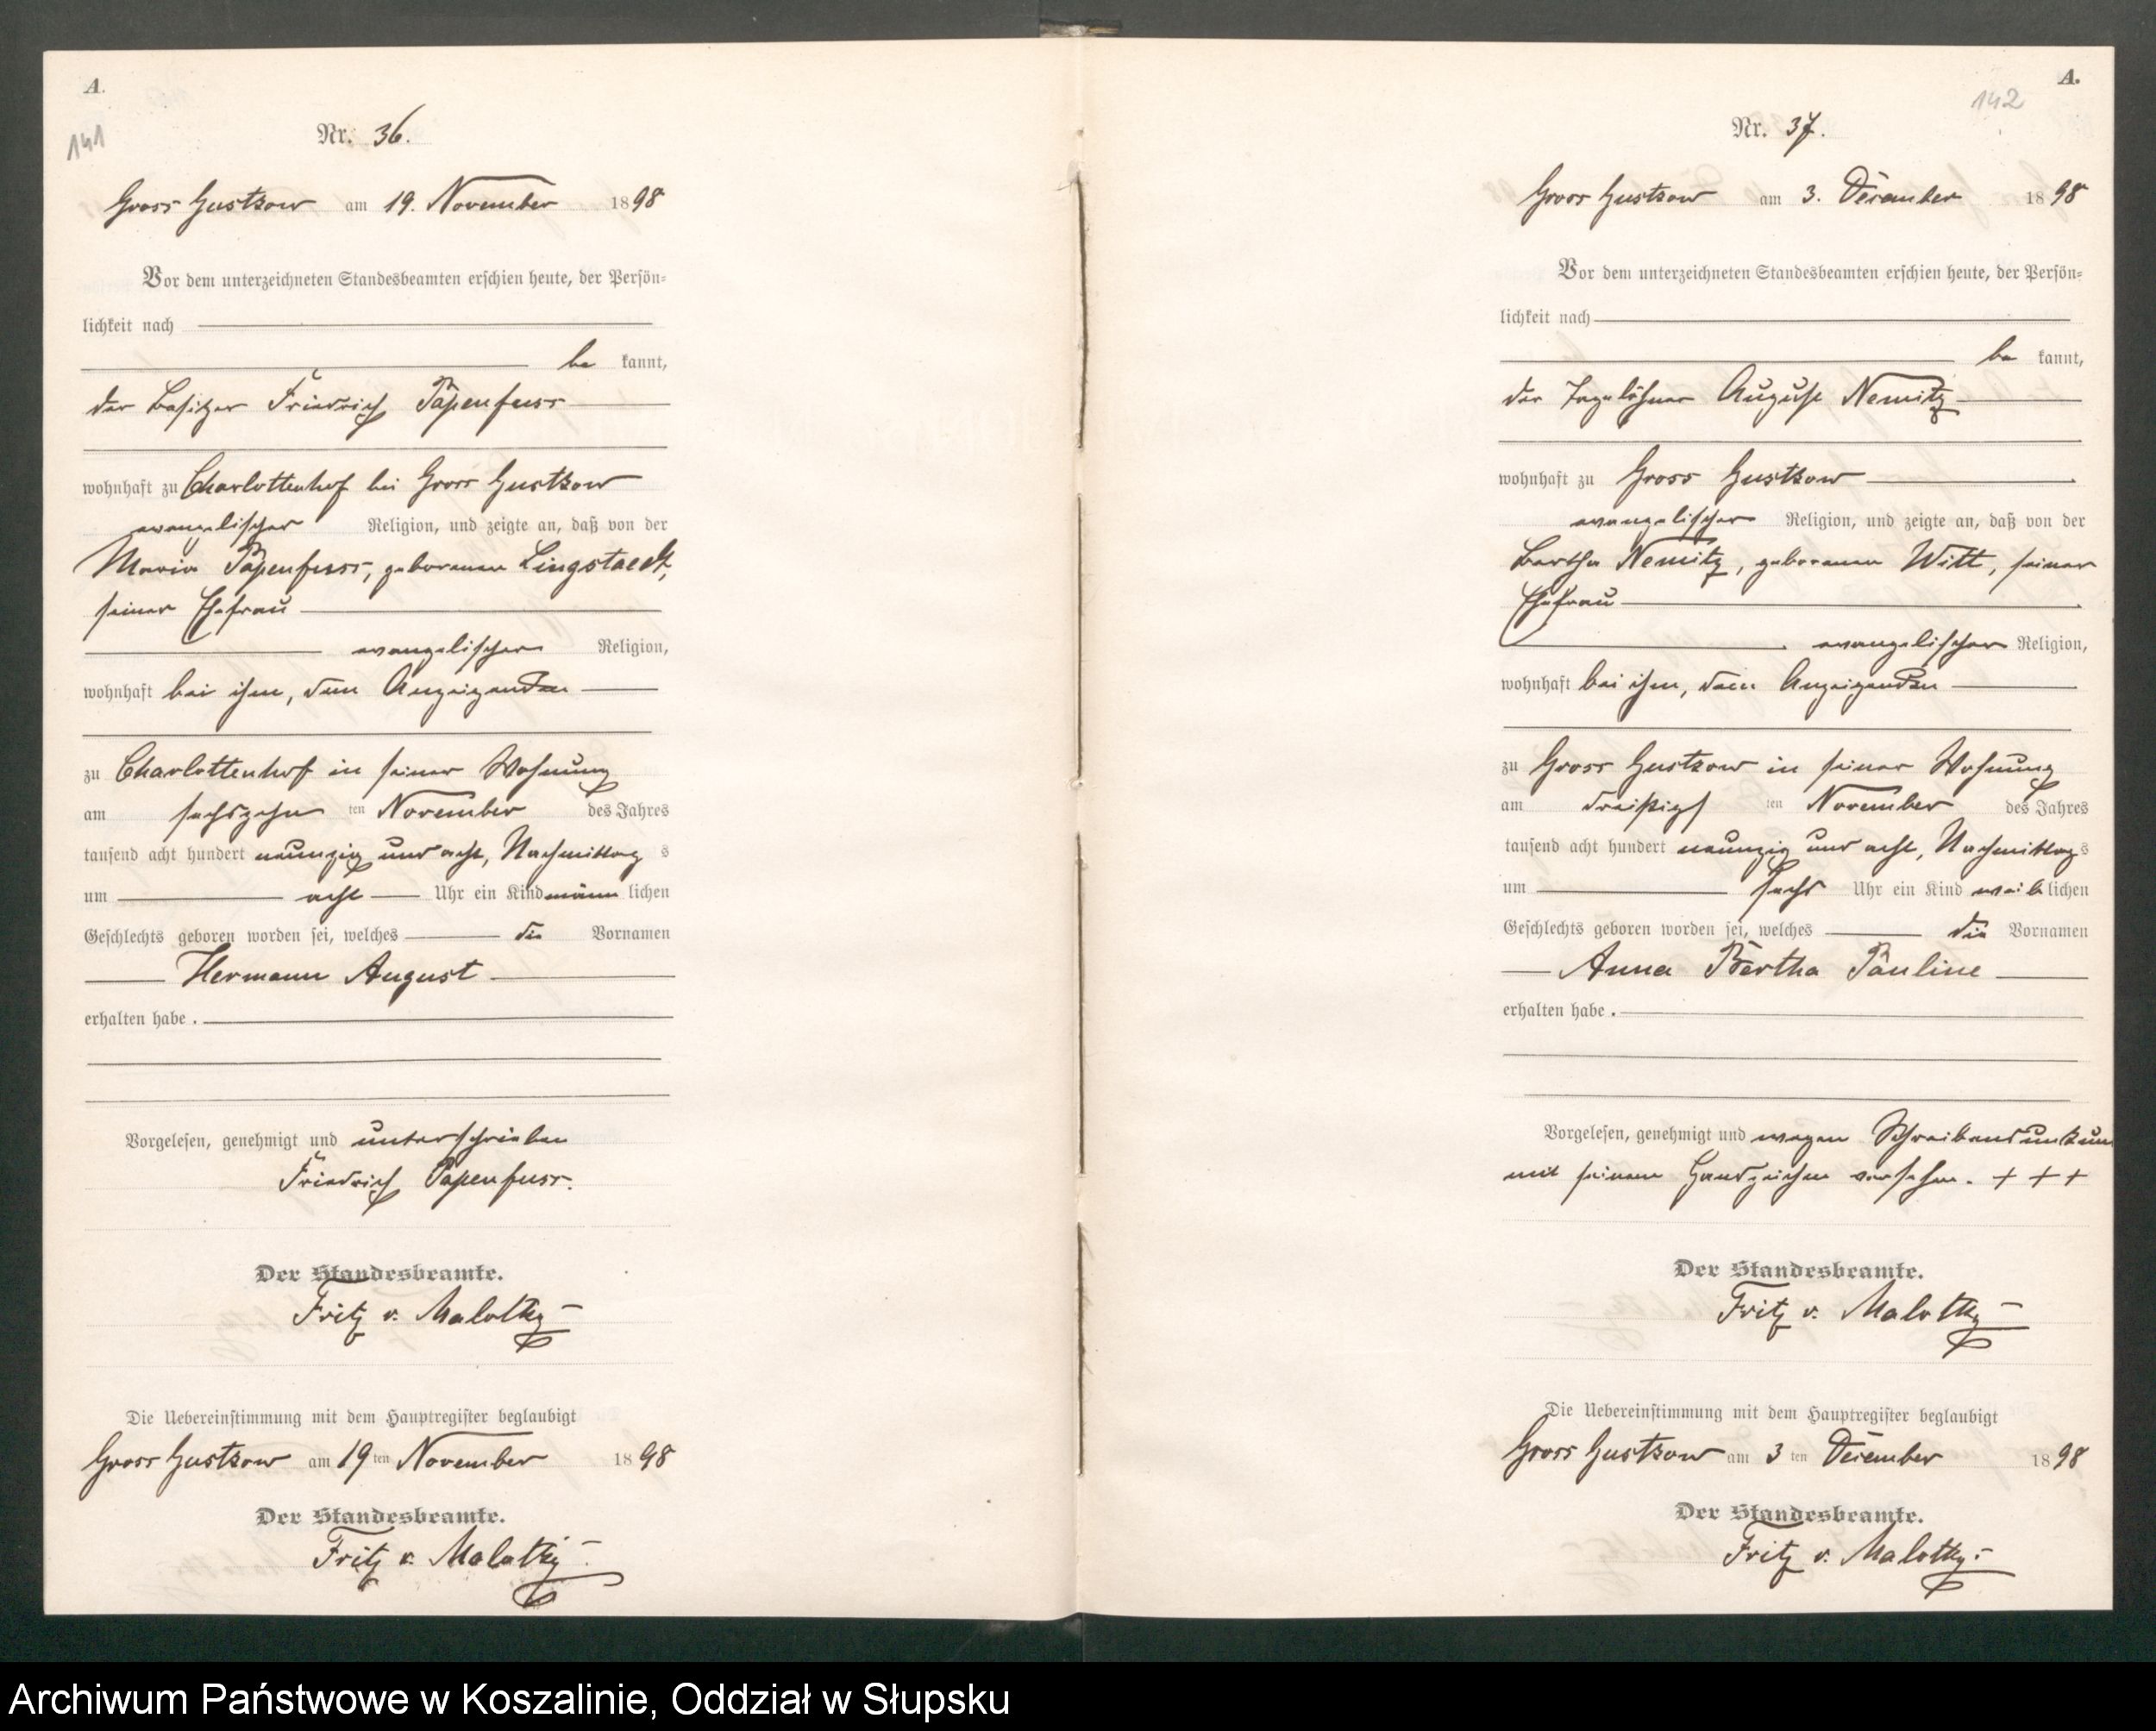 A.
141
Nr. 36.
Gross Gustkow am 19. November 1898
Vor dem unterzeichneten Standesbeamten erschien heute, der Persön-
lichkeit nach
be kannt,
der Besitzer Friedrich Papenfuss
wohnhaft zu Charlottenhof bei Gross Gustkow
evangelischer Religion, und zeigte an, daß von der
Maria Papenfuss, geborenen Lingstaedt,
seiner Ehefrau
evangelischer Religion,
wohnhaft bei ihm, dem Anzeigenden
zu Charlottenhof in seiner Wohnung
am sechszehn ten November des Jahres
tausend acht hundert neunzig und acht, Nachmittag s
um acht Uhr ein Kind männ lichen
Geschlechts geboren worden sei, welches die Vornamen
Hermann August
erhalten habe.
Vorgelesen, genehmigt und unterschrieben
Friedrich Papenfuss.
Der Standesbeamte.
Fritz v. Malotky
Die Uebereinstimmung mit dem Hauptregister beglaubigt
Gross Gustkow am 19 ten November 1898
Der Standesbeamte.
Fritz v. Malotky
A.
142
Nr. 37.
Gross Gustkow am 3. December 1898
Vor dem unterzeichneten Standesbeamten erschien heute, der Persön-
lichkeit nach
be kannt,
der Tagelöhner August Nemitz
wohnhaft zu Gross Gustkow
evangelischer Religion, und zeigte an, daß von der
Bertha Nemitz, geborenen Witt, seiner
Ehefrau
evangelischer Religion,
wohnhaft bei ihm, dem Anzeigenden
zu Gross Gustkow in seiner Wohnung
am dreißigs ten November des Jahres
tausend acht hundert neunzig und acht, Nachmittag s
um sechs Uhr ein Kind weib lichen
Geschlechts geboren worden sei, welches die Vornamen
Anna Bertha Pauline
erhalten habe.
Vorgelesen, genehmigt und wegen Schreibensunkun
mit seinem Handzeichen versehen. + + +
Der Standesbeamte.
Fritz v. Malotky
Die Uebereinstimmung mit dem Hauptregister beglaubigt
Gross Gustkow am 3 ten December 1898
Der Standesbeamte.
Fritz v. Malotky
Archiwum Państwowe w Koszalinie, Oddział w Słupsku